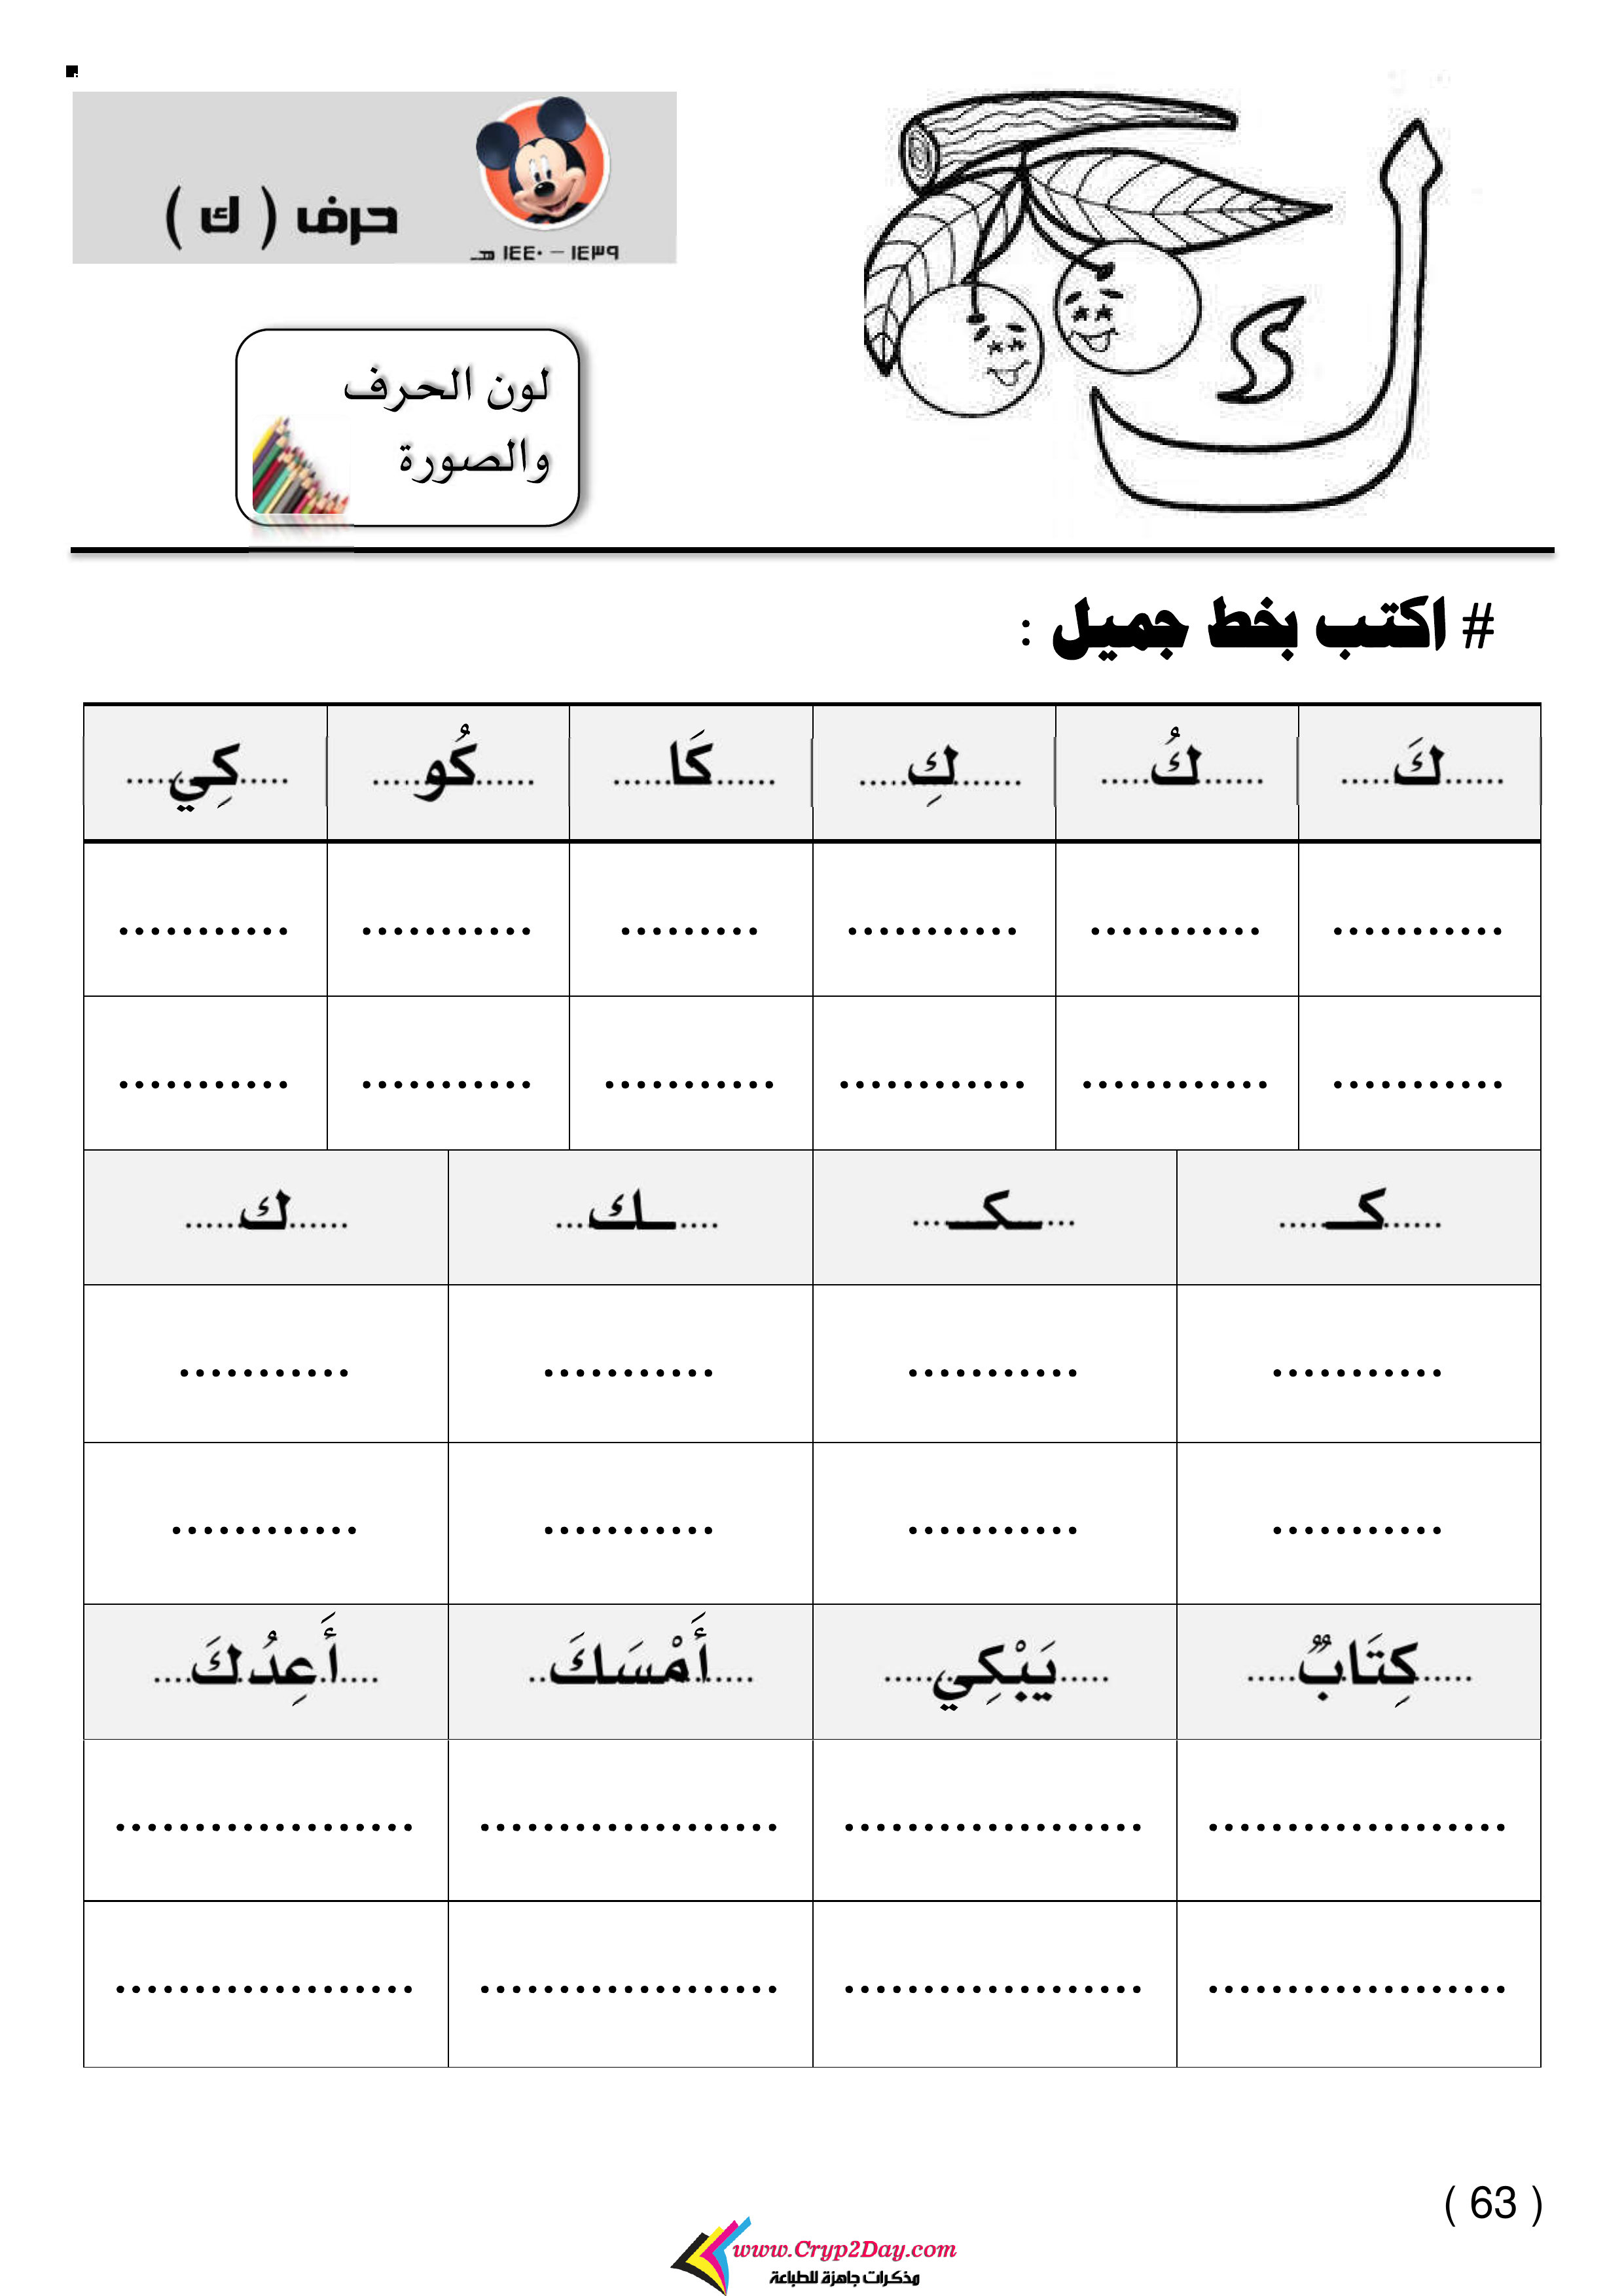 حرف ( ك )
١٤٣٩ – ١٤٤٠ هـ
ك
لون الحرف
والصورة
# اكتب بخط جميل :
......كَ..... ......كُ..... ......كِ..... ......كَا...... ......كُو..... .....كِي.....
........... ........... ........... ......... ........... ...........
........... ............ ............ ........... ........... ...........
......كـ..... ...ـكـ... ....ـك... ......ك.....
........... ........... ........... ...........
........... ........... ........... ............
......كِتَابٌ..... .....يَبْكِي..... .....أَمْسَكَ.. ....أَعِدُكَ....
................... ................... ................... ...................
................... ................... ................... ...................
( 63 )
www.Cryp2Day.com
مذكرات جاهزة للطباعة